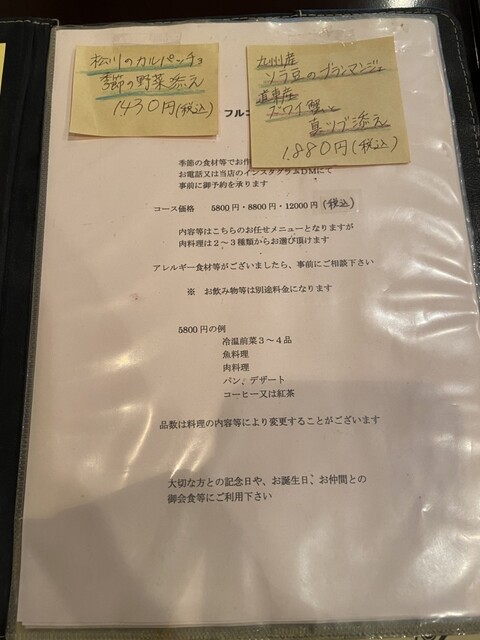 松川のカルパッチョ
季節の野菜添え
1430円(税込)
九州産
ソラ豆のブランマンジェ
ズワイ蟹と
真ツブ添え
1.880円(税込)
フルコ
季節の食材等でお作
お電話又は当店のインスタグラムDMにて
事前に御予約を承ります
コース価格 5800円・8800円・12000円 (税込)
内容等はこちらのお任せメニューとなりますが
肉料理は2~3種類からお選び頂けます
アレルギー食材等がございましたら、事前にご相談下さい
※ お飲み物等は別途料金になります
5800円の例
冷温前菜3~4品
魚料理
肉料理
パン、デザート
コーヒー又は紅茶
品数は料理の内容等により変更することがございます
大切な方との記念日や、お誕生日、お仲間との
御会食等にご利用下さい